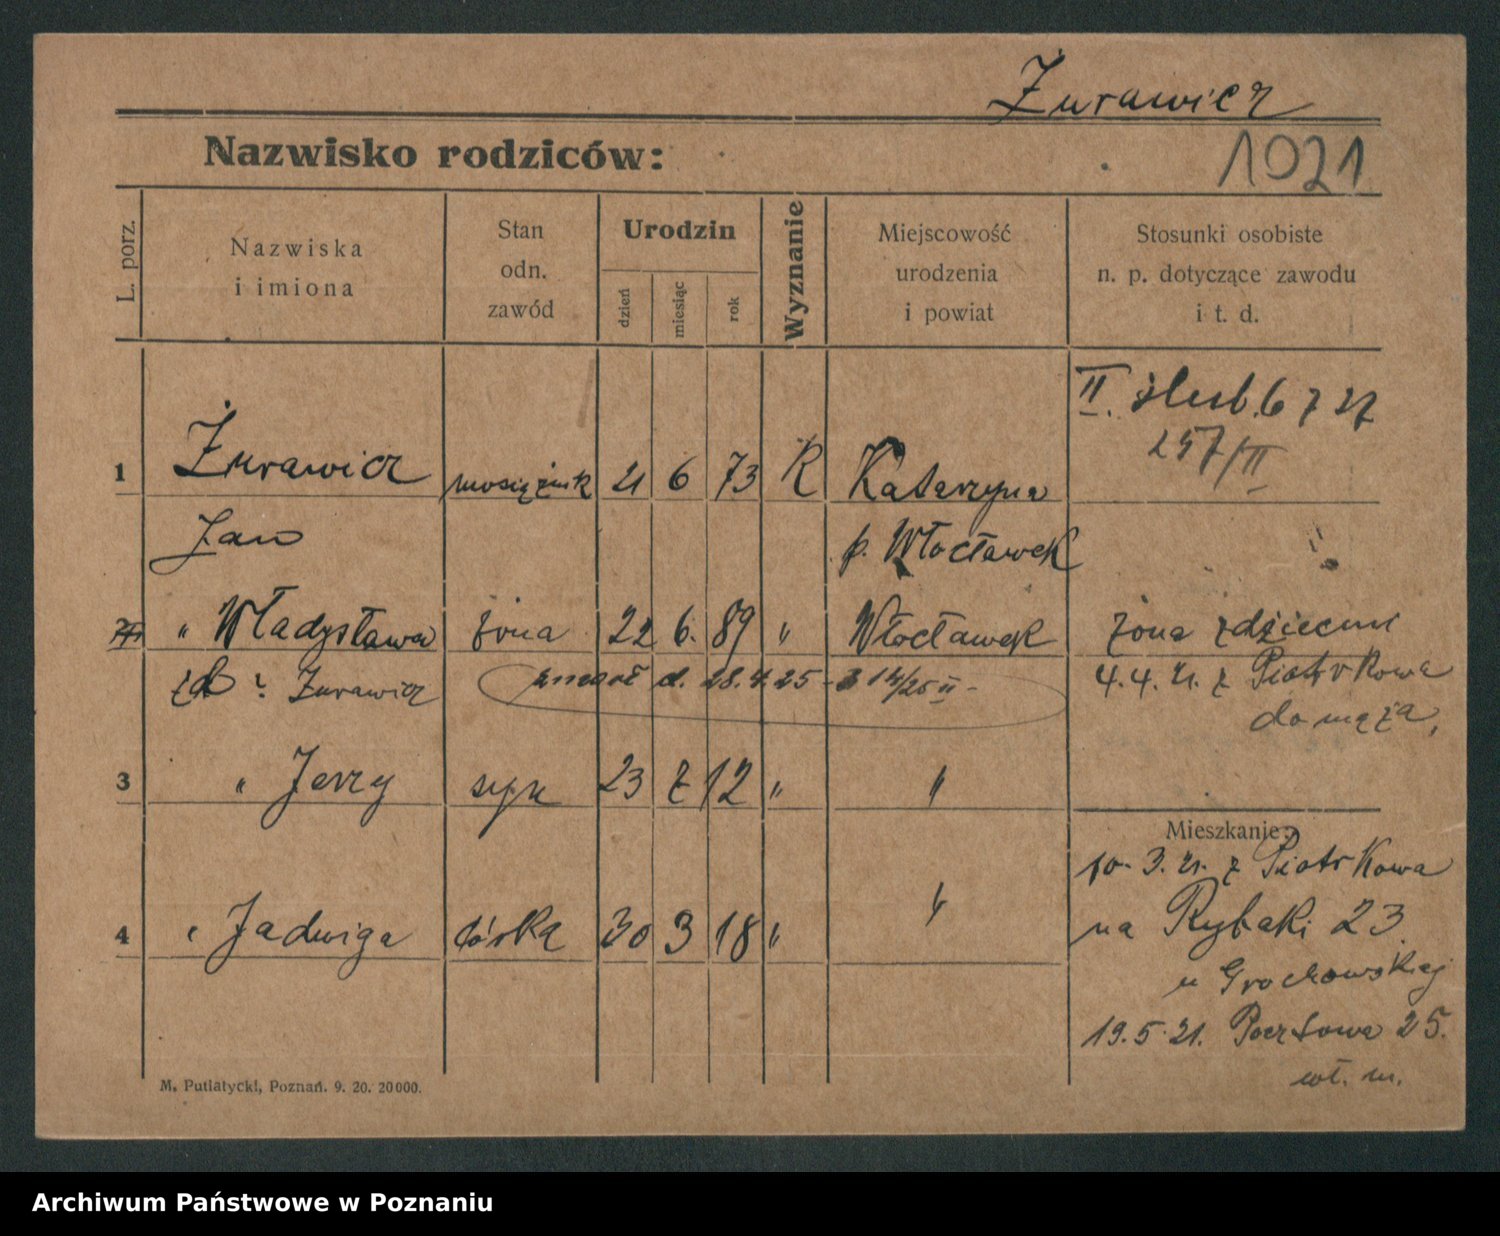 Żurawicz
Nazwisko rodziców:
1921
L. porz.
Nazwiska
i imiona
Stan
odn.
zawód
Urodzin
dzień
miesiąc
rok
Wyznanie
Miejscowość
urodzenia
i powiat
Stosunki osobiste
n. p. dotyczące zawodu
i t. d.
II. ślub. 6 7 27
257/II
1 Żurawicz 21 6 73 K Katarzyna
Jan p. Włocławek
" Władysława żona 22 6. 89 " Włocławek żona z dziećmi
Żurawicz zmarł d. 28.4.25 - 14/25 II - 4.4.21. z Piotrkowa
do męża,
3 " Jerzy syn 23 7 12 " "
Mieszkanie:
10.3.21. z Piotrkowa
4 " Jadwiga córka 30 3 18 " " na Rybaki 23
u Grochowskiej
19.5.21. Pocztowa 25.
wł. m.
M. Putiatycki, Poznań. 9. 20. 20000.
Archiwum Państwowe w Poznaniu